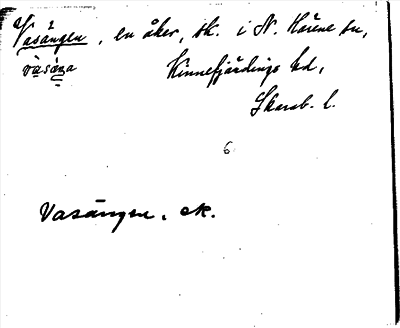 Vasängen, en åker, sk. i N. Härene sn,
vàsäŋa Kinnefjärdings hd,
Skarab. l.
6
Vasängen. ak.